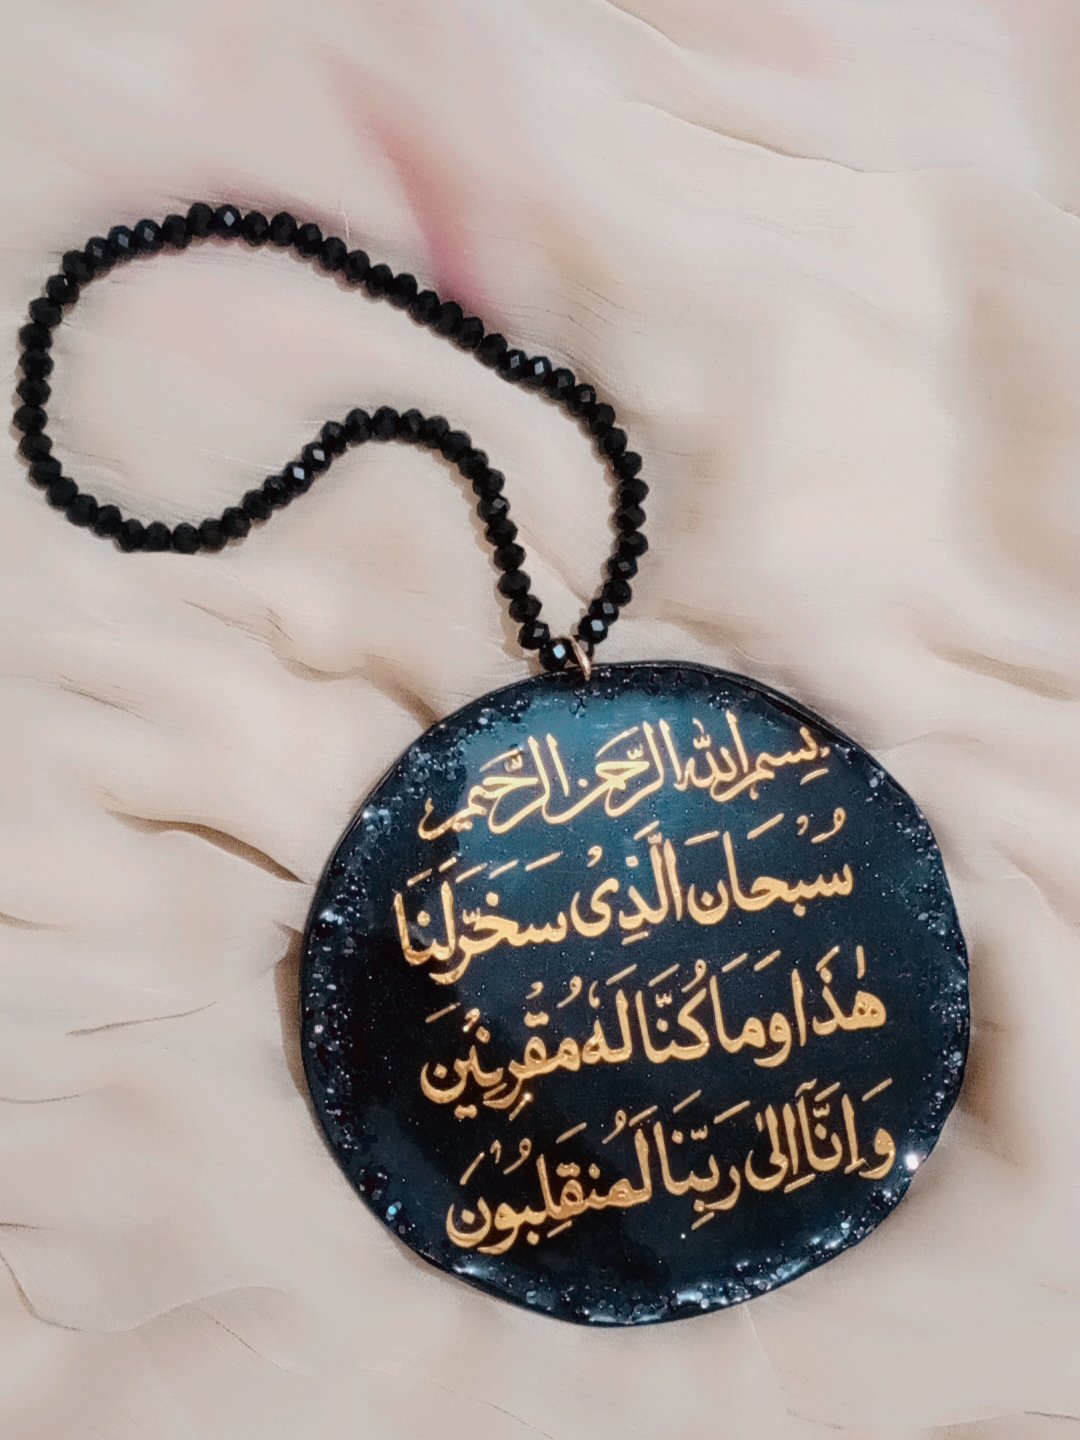 بِسمِ اللّٰهِ الرَّحمٰنِ الرَّحيمِ
سُبْحَانَ الَّذِىْ سَخَّرَ لَنَا
هٰذَا وَمَا كُنَّا لَهٗ مُقْرِنِيْنَ
وَاِنَّآ اِلىٰ رَبِّنَا لَمُنقَلِبُوْنَ